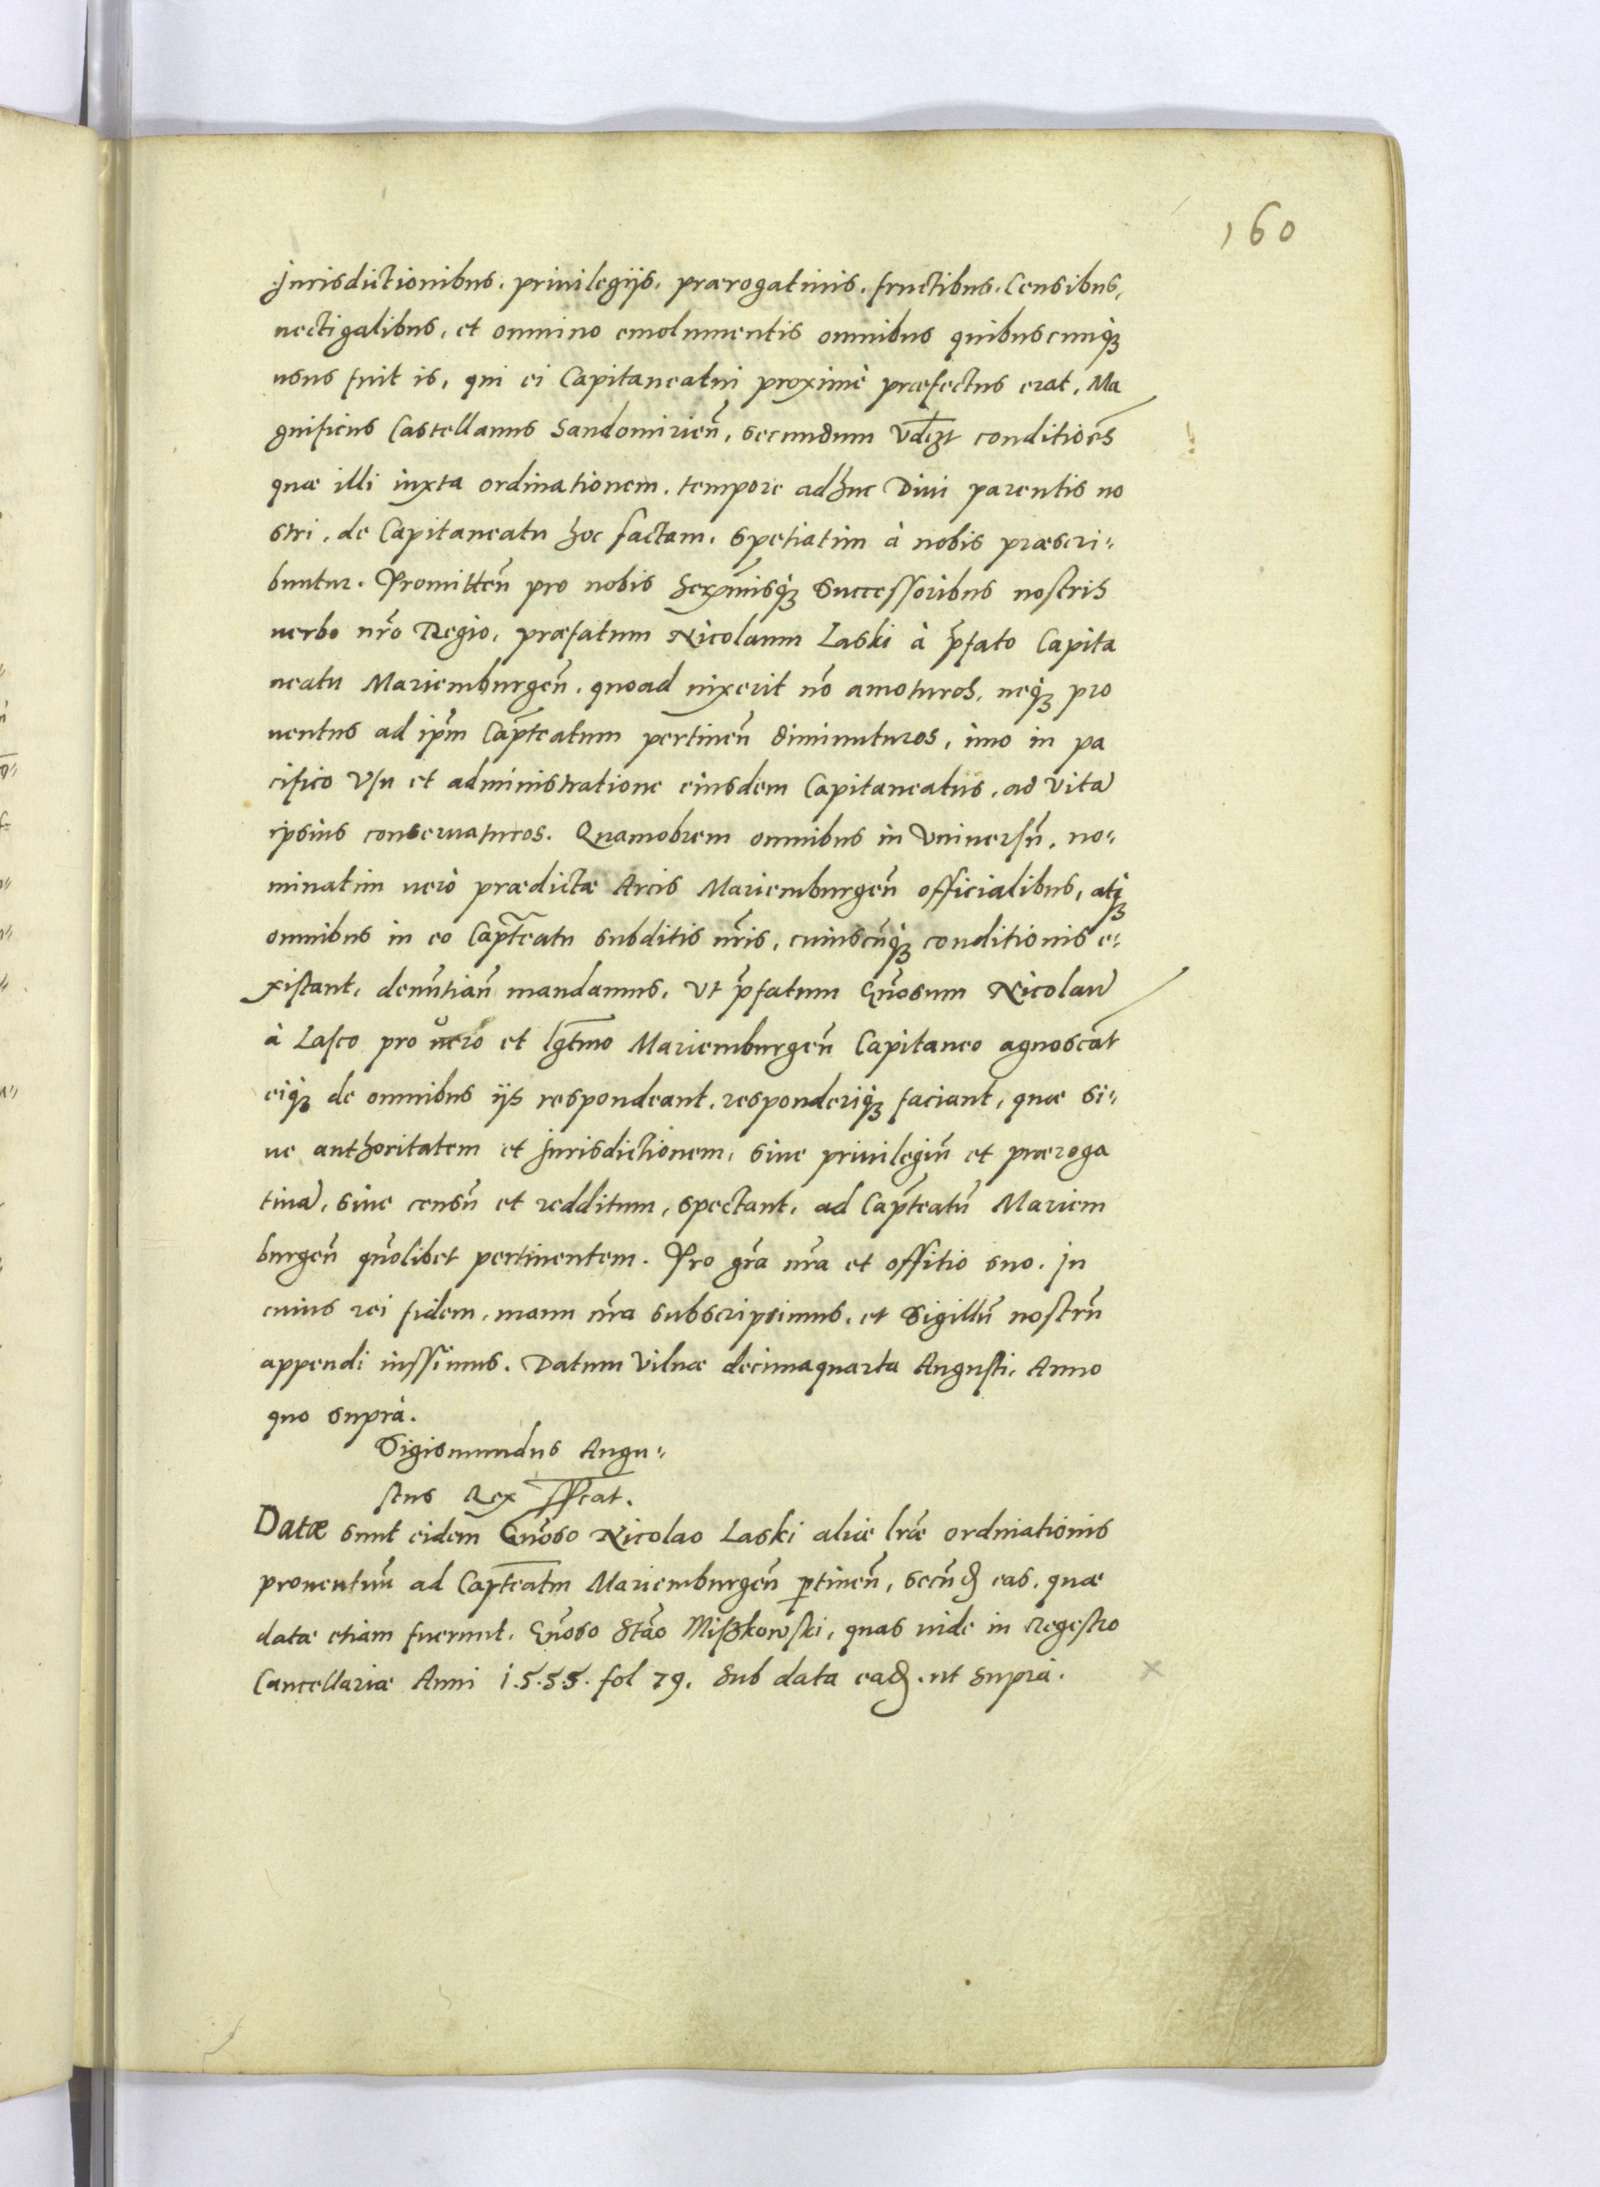 160
Jurisdictionibus. priuilegijs. prærogatiuis. fructibus. Censibus,
uectigalibus, et omnino emolumentis omnibus quibuscunqꝫ
usus fuit is, qui ei Capitaneatui proximè præfectus erat, Ma
gnificus Castellanus Sandomirien̄, secundum conditiōes
quæ illi iuxta ordinationem, tempore adhuc Diui parentis no
stri, de Capitaneatu hoc factam, spetiatim à nobis præscri-
buntur. Promitten̄ pro nobis Serm̄isqꝫ Successoribus nostris
uerbo nr̄o Regio, præfatum Nicolaum Laski à p̄fato Capita
neatu Mariemburgen̄, quoad uixerit nō amoturos, neqꝫ pro
uentus ad ip̄m Cap̄teatum pertinen̄ diminuturos, imo in pa
cifico Vsu et administratione eiusdem Capitaneatus, ad vitā
ipsius conseruaturos. Quamobrem omnibus in Vniuersū, no-
minatim uerò prædictæ Arcis Mariemburgen̄ officialibus, atqꝫ
omnibus in eo Cap̄teatu subditis nr̄is, cuiuscūqꝫ conditionis e-
xistant, denūtian̄ mandamus, Vt p̄fatum Gn̄osum Nicolaū
à Lasco pro uero et lgt̄mo Mariemburgen̄ Capitaneo agnoscāt
eiqꝫ de omnibus ijs respondeant, responderiqꝫ faciant, quæ si-
ue authoritatem et Jurisdictionem, siue priuilegiū et præroga
tiuā, siue censū et redditum, spectant, ad Cap̄teatū Mariem
burgen̄ qūolibet pertinentem. Pro gr̄a nr̄a et offitio suo. In
cuius rei fidem, manu nr̄a subscripsimus, et Sigillū nostrū
appendi iussimus. Datum Vilnæ decimaquarta Augusti, Anno
quo suprà.
Sigismundus Augu-
stus Rex sst̄.
Datæ sunt eidem Gn̄oso Nicolao Laski aliæ lr̄æ ordinationis
prouentuū ad Cap̄teatm Mariemburgen̄ ꝑtinen̄, secūd eas, quæ
datæ etiam fuerunt, Gn̄oso Stāo Mißkowski, quas uide in Regestro
Cancellariæ Anni 1.5.5.5. fol 79. Sub data ead. ut suprà.